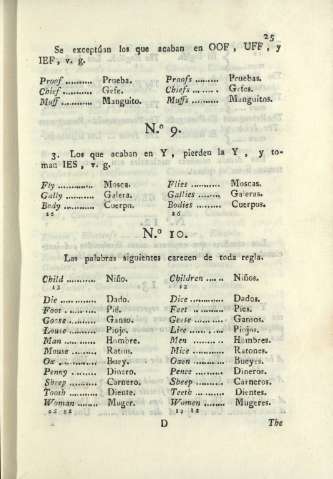 25
Se exceptúan los que acaban en OOF, UFF, y
IEF, v. g.
Proof .......... Prueba. Proofs ......... Pruebas.
Chief ........... Gefe. Chiefs ........ Gefes.
Muff ............ Manguito. Muffs .......... Manguitos.
N.º 9.
3. Los que acaban en Y, pierden la Y, y to-
man IES, v. g.
Fly .............. Mosca. Flies ........... Moscas.
Gally ........... Galera. Gallies ........ Galeras.
Body ........... Cuerpo. Bodies ......... Cuerpos.
N.º 10.
Las palabras siguientes carecen de toda regla.
Child ........... Niño. Children ..... Niños.
12 12
Die .............. Dado. Dice ............ Dados.
Foot ............ Pie. Feet ............ Pies.
Goose .......... Ganso. Geese .......... Gansos.
Louse .......... Piojo. Lice ............ Piojos.
Man ............ Hombre. Men ............ Hombres.
Mouse ......... Raton. Mice ........... Ratones.
Ox .............. Buey. Oxen ........... Bueyes.
Penny ......... Dinero. Pence .......... Dineros.
Sheep .......... Carnero. Sheep .......... Carneros.
Tooth .......... Diente. Teeth .......... Dientes.
Woman ....... Muger. Women ........ Mugeres.
D The